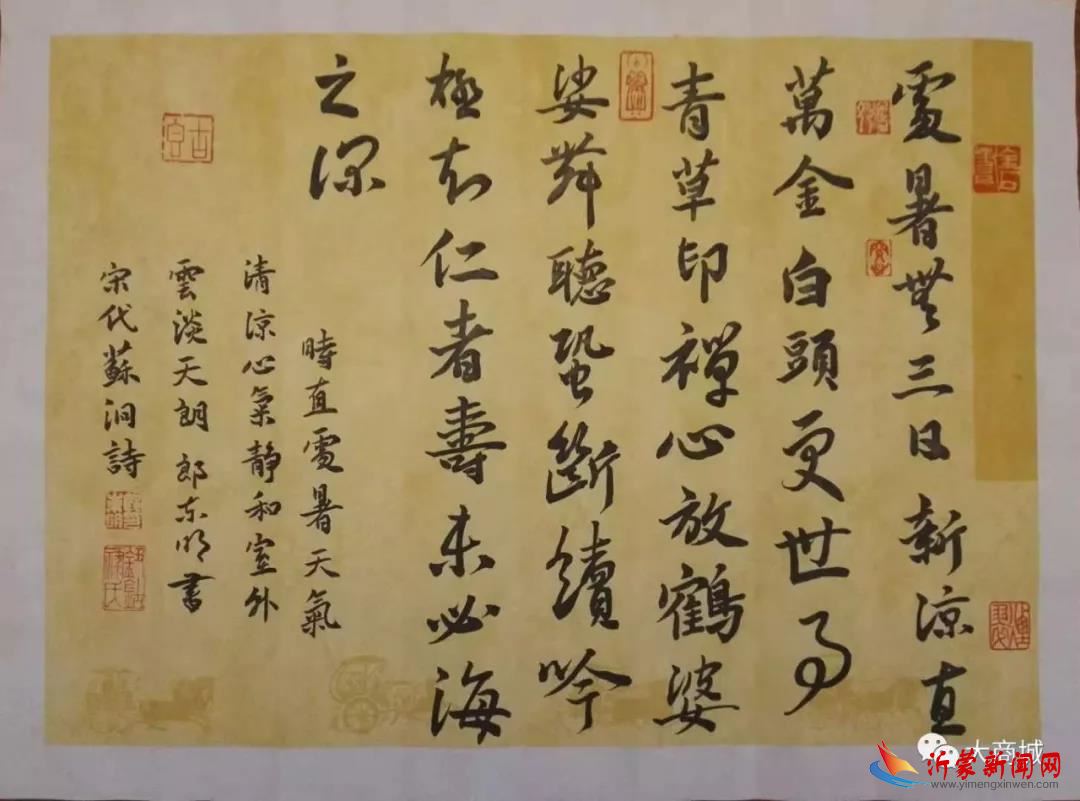 處暑無三日新凉直
萬金白頭更世事
青草印禪心放鶴婆
娑舞聽蛩斷續吟
極知仁者壽未必海
之深
時直處暑天氣
清凉心氣静和室外
雲淡天朗 郎东明書
宋代蘇泂詩
大商城
沂蒙新闻网
www.yimengxinwen.com